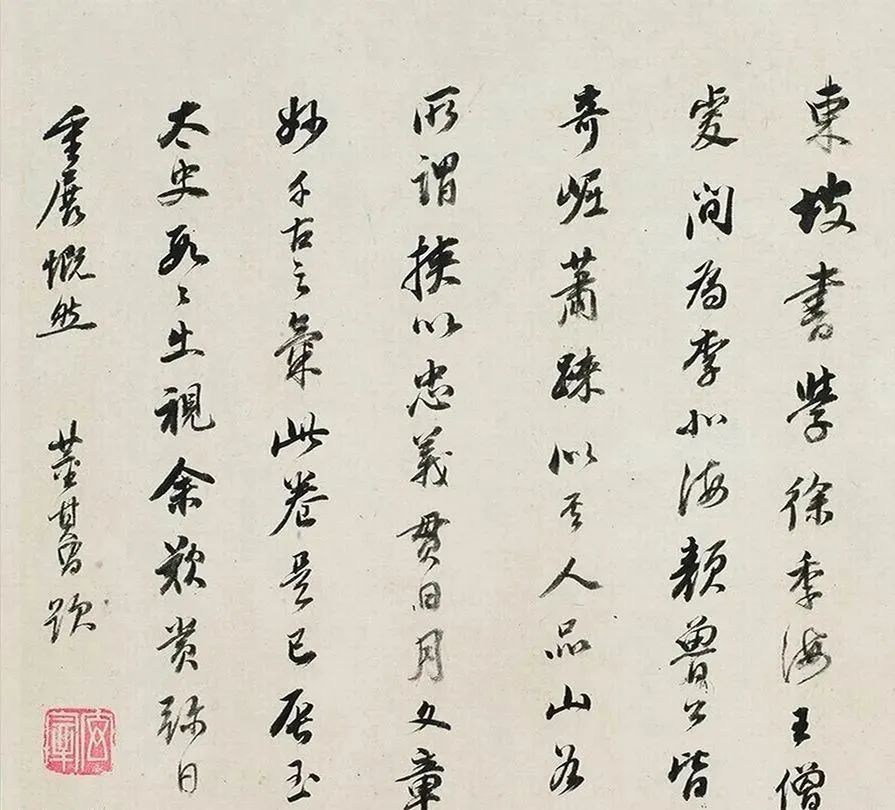 東坡書學徐季海王僧
虔間為李北海顏魯公皆
奇崛蕭踈似其人品山谷
所謂挾以忠義貫日月文章
妙千古之氣此卷是已辰玉
太史數〻出視余歎賞弥日
重展慨然 董其昌題